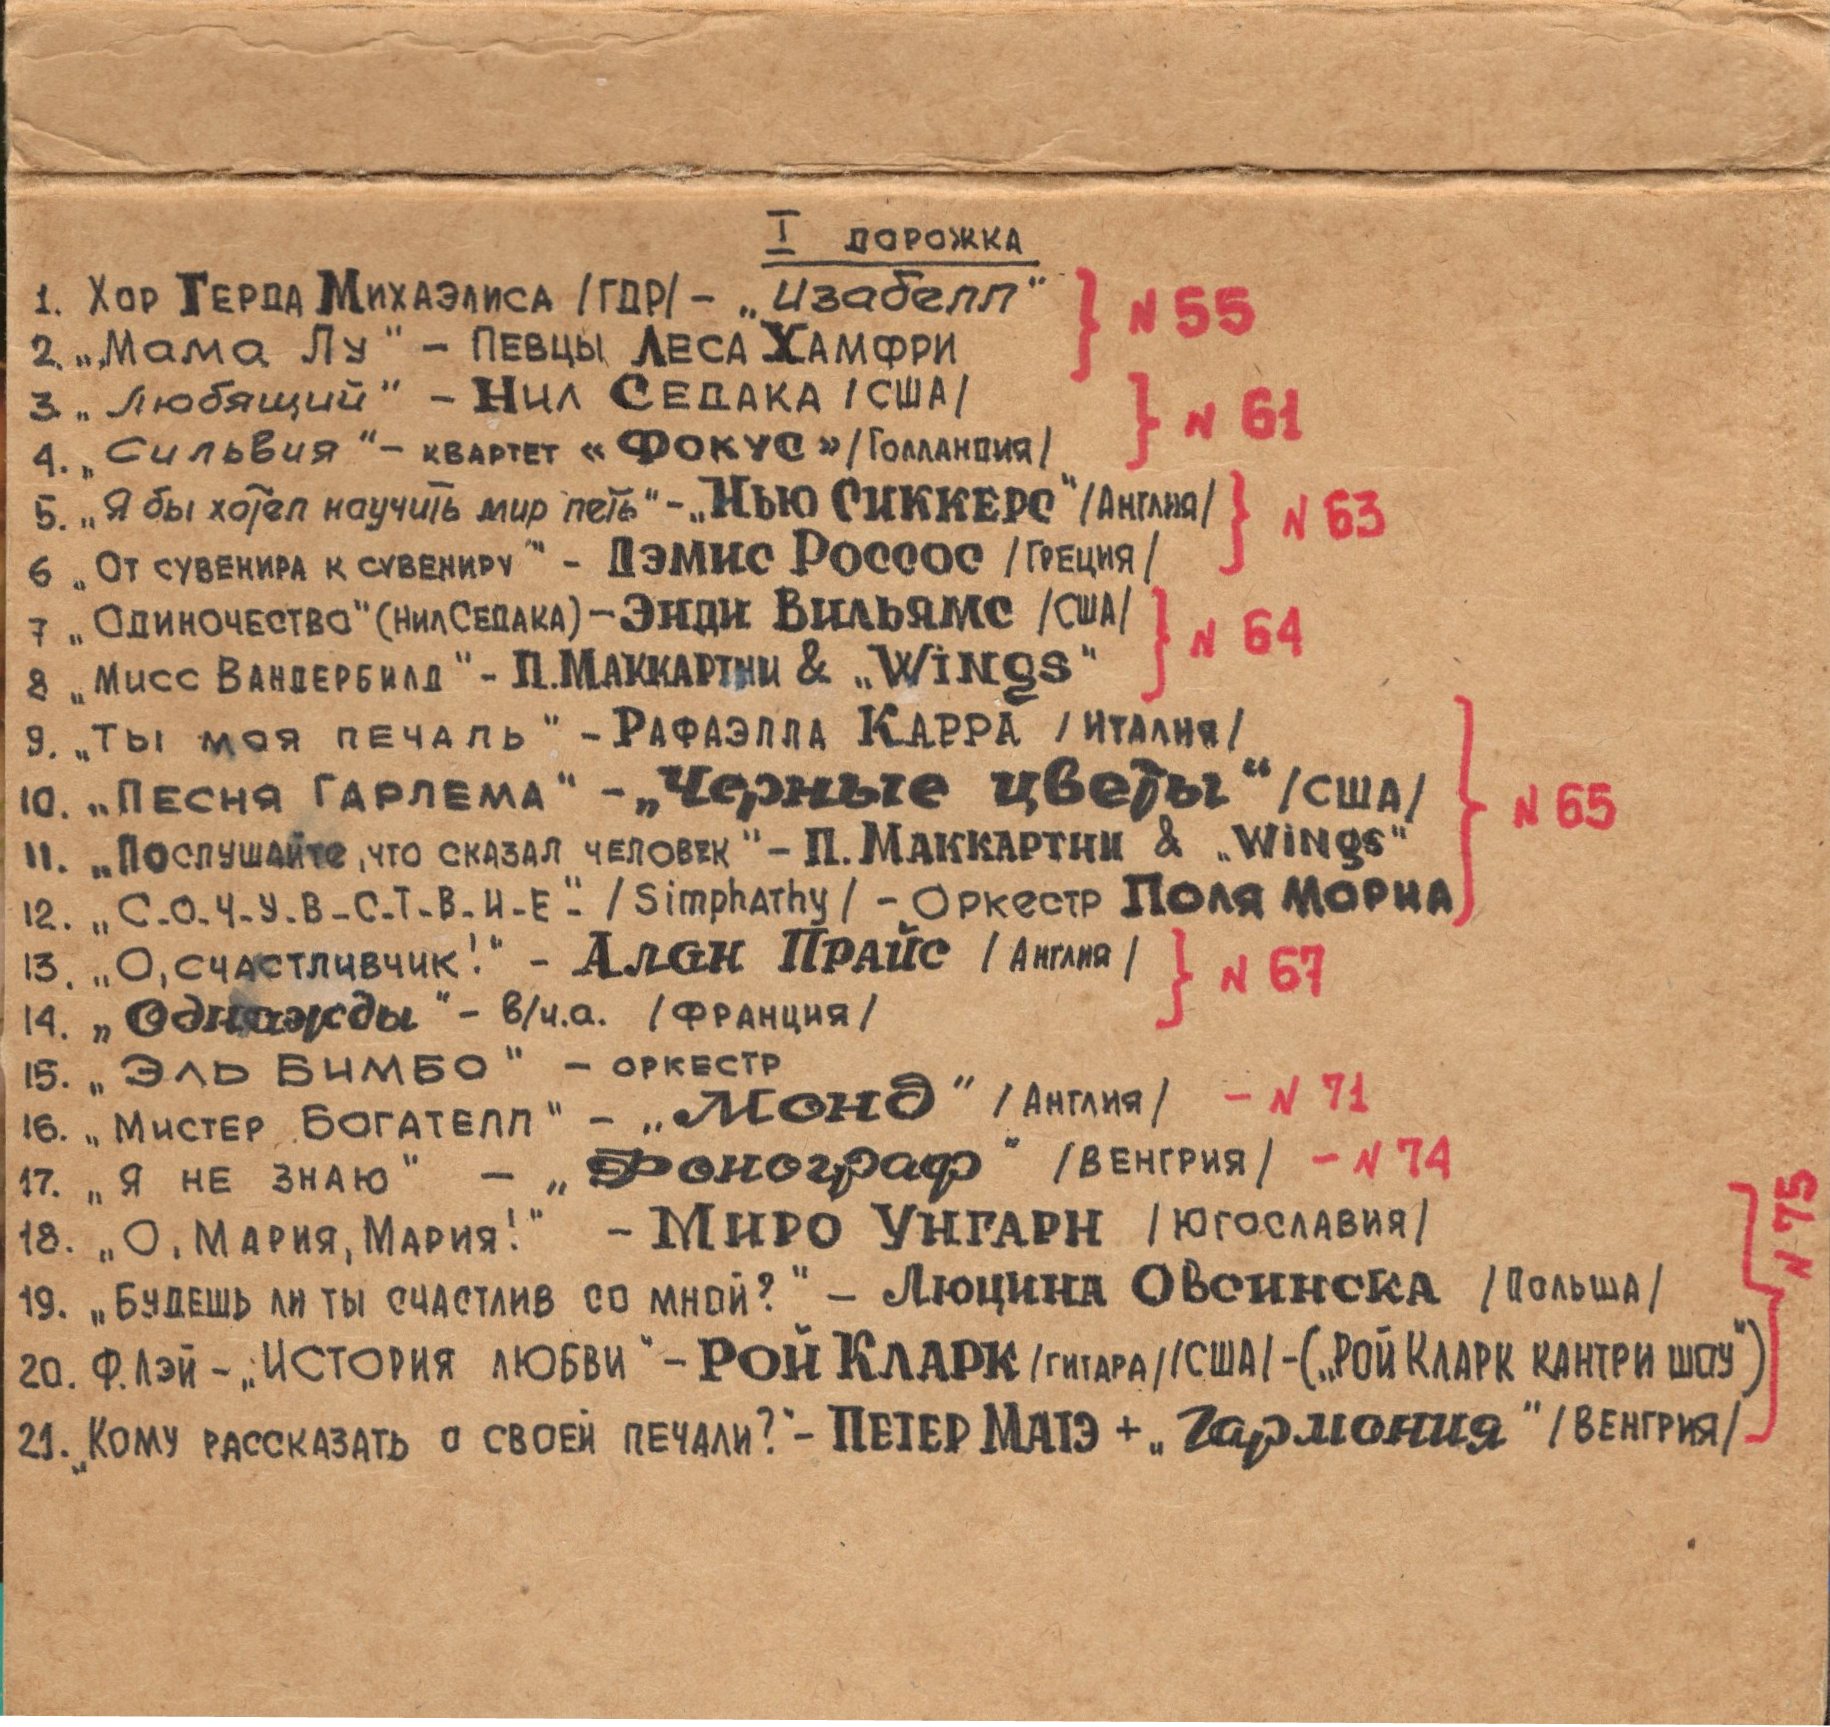 I дорожка
1. Хор Герда Михаэлиса /ГДР/ – „Изабелл" } N 55
2. „Мама Лу" – певцы Леса Хамфри
3. „Любящий" – Нил Седака /США/ } N 61
4. „Сильвия" – квартет «Фокус» /Голландия/
5. „Я бы хотел научить мир петь" – „Нью Сиккерс" /Англия/ } N 63
6 „От сувенира к сувениру" – Дэмис Россос /Греция/
7 „Одиночество" (Нил Седака) – Энди Вильямс /США/ } N 64
8 „Мисс Вандербилд" – П. Маккартни & „Wings"
9. „Ты моя печаль" – Рафаэлла Карра /Италия/
10. „Песня Гарлема" – „Черные цветы" /США/ } N 65
11. „Послушайте, что сказал человек" – П. Маккартни & „Wings"
12. „С-О-Ч-У-В-С-Т-В-И-Е" – /Simphathy/ – Оркестр Поля Мориа
13. „О, счастливчик!" – Алан Прайс /Англия/ } N 67
14. „Однажды" – в/и.а. /Франция/
15. „Эль Бимбо" – оркестр
16. „Мистер Богателл" – „Монд" /Англия/ – N 71
17. „Я не знаю" – „Фонограф" /Венгрия/ – N 74
18. „О, Мария, Мария!" – Миро Унгарн /Югославия/ } N 75
19. „Будешь ли ты счастлив со мной?" – Люцина Овсинска /Польша/
20. Ф. Лэй – „История любви" – Рой Кларк /гитара/ /США/ – („Рой Кларк кантри шоу")
21. „Кому рассказать о своей печали?" – Петер Матэ + „Гармония" /Венгрия/